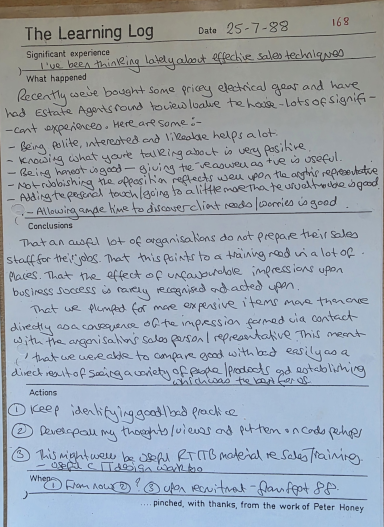 168
The Learning Log Date 25-7-88
Significant experience
I've been thinking lately about effective sales techniques
What happened
Recently we've bought some pricey electrical gear and have
had Estate Agents round to view/value the house - lots of signifi-
-cant experiences. Here are some:-
- Being polite, interested and likeable helps a lot.
- Knowing what you're talking about is very positive.
- Being honest is good - giving the -ve as well as +ve is useful.
- Not rubbishing the opposition reflects well upon the representative
- Adding the personal touch/going to a little more than the usual trouble is good
- Allowing ample time to discover client needs/worries is good
Conclusions
That an awful lot of organisations do not prepare their sales
staff for their jobs. That this points to a training need in a lot of
places. That the effect of unfavourable impressions upon
business success is rarely recognised and acted upon.
That we plumped for more expensive items more than once
directly as a consequence of the impression formed via contact
with the organisation's sales person/representative. This meant
that we were able to compare good with bad easily as a
direct result of seeing a variety of people/products and establishing
which was the best for us.
Actions
① Keep identifying good/bad practice
② Develop all my thoughts/views and put them on cards perhaps
③ This might well be useful material re sales training.
- useful
When
① From now ② ? ③ upon recruitment -
....pinched, with thanks, from the work of Peter Honey